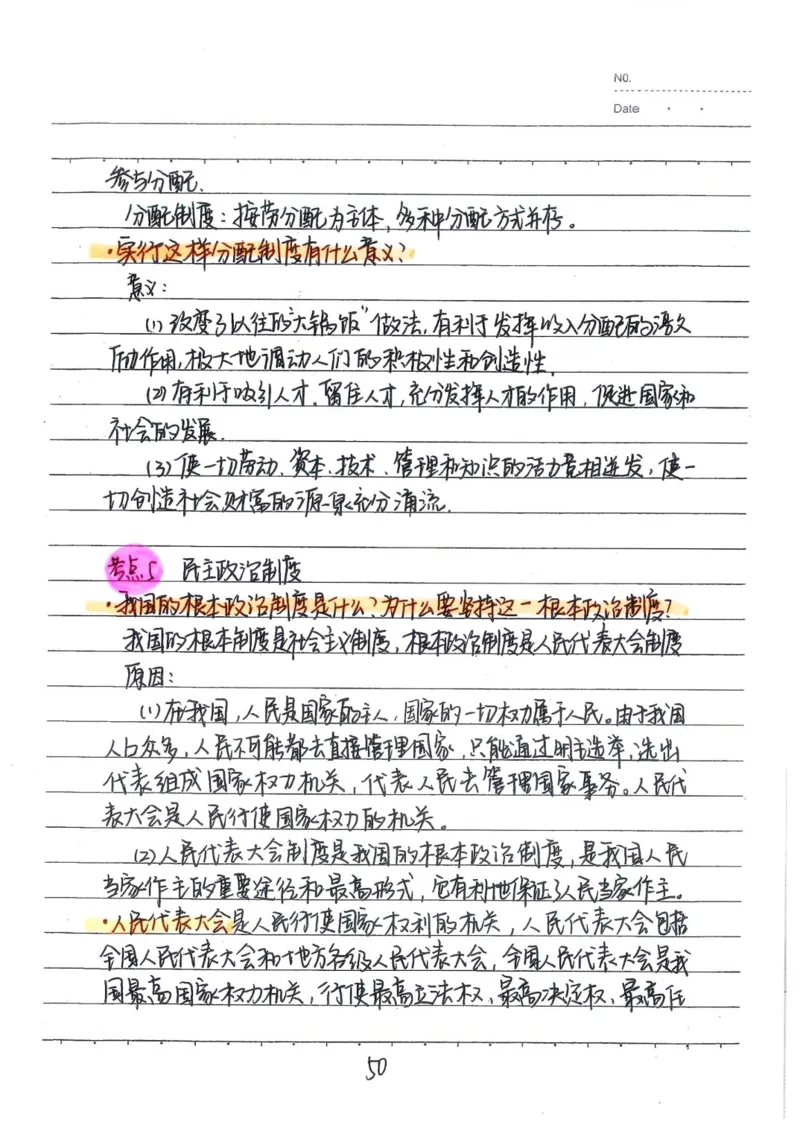 No.
Date
参与分配.
分配制度：按劳分配为主体，多种分配方式并存。
·实行这样分配制度有什么意义？
意义：
(1) 改变了以往的“大锅饭”做法，有利于发挥收入分配的激
励作用，极大地调动人们的积极性和创造性.
(2) 有利于吸引人才、留住人才，充分发挥人才的作用，促进国家和
社会的发展.
(3) 使一切劳动、资本、技术、管理和知识的活力竞相迸发，使一
切创造社会财富的源泉充分涌流.
考点5 民主政治制度
·我国的根本政治制度是什么？为什么要坚持这一根本政治制度？
我国的根本制度是社会主义制度，根本政治制度是人民代表大会制度
原因：
(1) 在我国，人民是国家的主人，国家的一切权力属于人民。由于我国
人口众多，人民不可能都去直接管理国家，只能通过民主选举，选出
代表组成国家权力机关，代表人民去管理国家事务。人民代
表大会是人民行使国家权力的机关。
(2) 人民代表大会制度是我国的根本政治制度，是我国人民
当家作主的重要途径和最高形式，它有利地保证了人民当家作主。
·人民代表大会是人民行使国家权利的机关，人民代表大会包括
全国人民代表大会和地方各级人民代表大会，全国人民代表大会是我
国最高国家权力机关，行使最高立法权，最高决定权，最高任
50